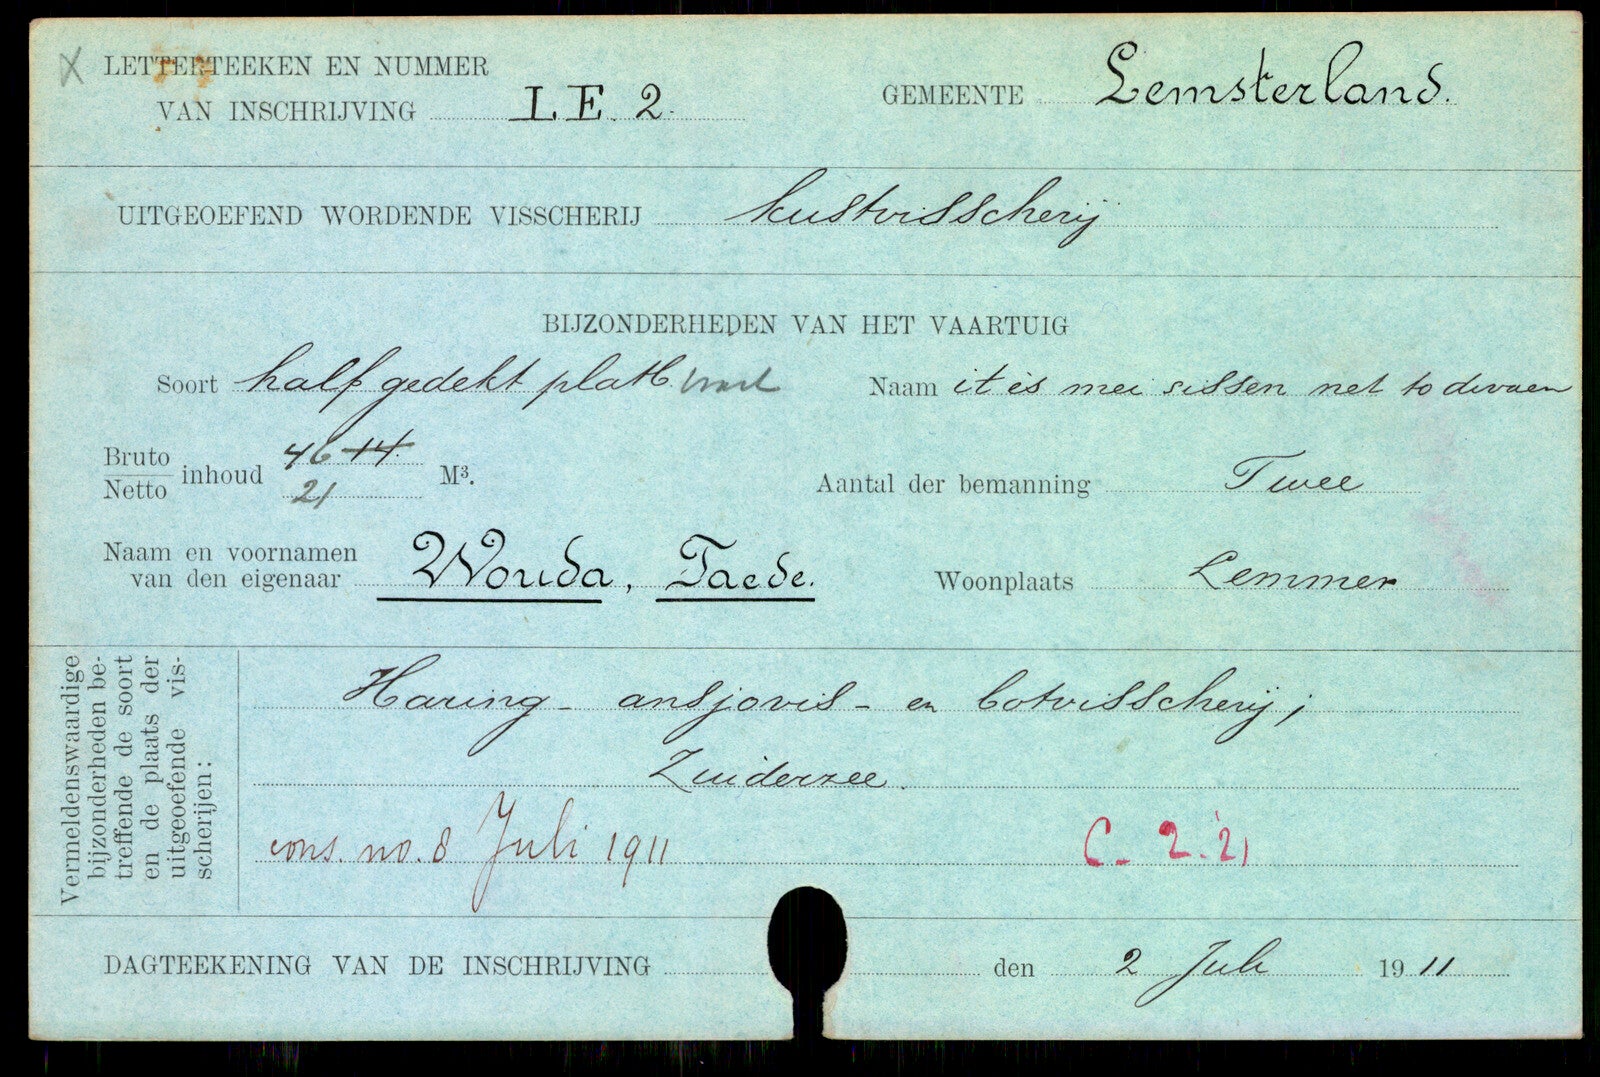 X LETTERTEEKEN EN NUMMER
VAN INSCHRIJVING L.E. 2.
GEMEENTE Lemsterland.
UITGEOEFEND WORDENDE VISSCHERIJ kustvisscherij
BIJZONDERHEDEN VAN HET VAARTUIG
Soort half gedekt platb
Naam it is mei sissen net to dwaen
Bruto 46 14
Netto inhoud 21 M³.
Aantal der bemanning Twee
Naam en voornamen
van den eigenaar Wouda, Taede.
Woonplaats Lemmer
Vermeldenswaardige
bijzonderheden be-
treffende de soort
en de plaats der
uitgeoefende vis-
scherijen:
Haring- ansjovis- en botvisscherij;
Zuiderzee.
cons. no. 8 Juli 1911
C- 2.'21
DAGTEEKENING VAN DE INSCHRIJVING den 2 Juli 1911